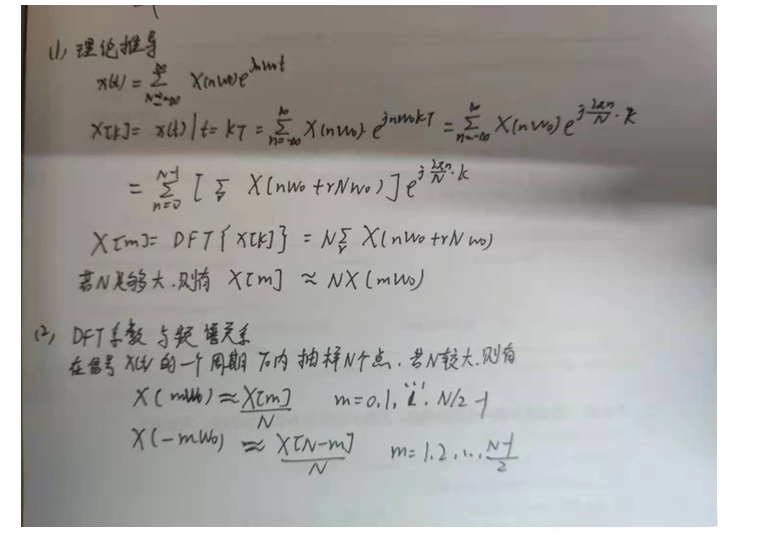 (1) 理论推导
x(t) = ∑_{n=-∞}^{∞} X(nw₀)e^{jnw₀t}
x[k] = x(t)|t=kT = ∑_{n=-∞}^{∞} X(nw₀)·e^{jnw₀kT} = ∑_{n=-∞}^{∞} X(nw₀)e^{j\frac{2πn}{N}·k}
= ∑_{n=0}^{N-1} [∑_r X(nw₀+rNw₀)]e^{j\frac{2πn}{N}·k}
X[m] = DFT{x[k]} = N∑_r X(nw₀+rNw₀)
若N足够大.则有 X[m] ≈ NX(mw₀)
(2), DFT系数与频谱关系
在信号x(t)的一个周期T₀内抽样N个点.若N较大.则有
X(mw₀) ≈ \frac{X[m]}{N} m=0,1, ... N/2-1
X(-mw₀) ≈ \frac{X[N-m]}{N} m=1.2....\frac{N-1}{2}